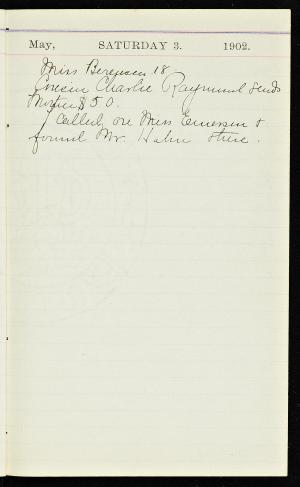 May, SATURDAY 3. 1902.
Miss Bergesen 18
Cousin Charlie Raymond sends
Mother $50.
I called on Miss Emerson &
found Mr. Hahn there.